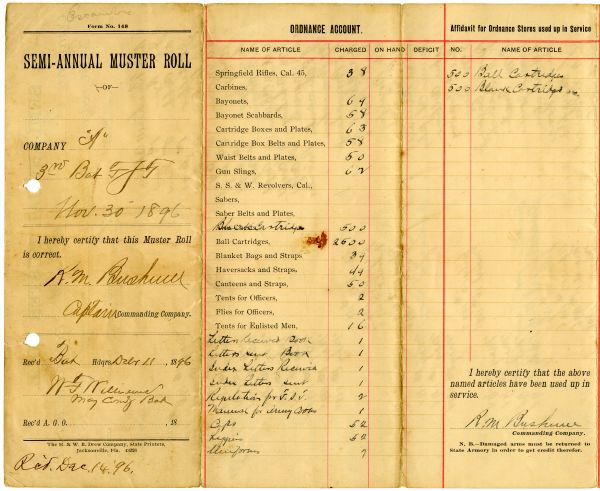 Form No. 148
SEMI-ANNUAL MUSTER ROLL
—OF—
COMPANY "A"
3rd Bat F S T
Nov. 30 1896
I hereby certify that this Muster Roll
is correct.
R. M. Bushnell
Captain Commanding Company.
Rec'd Bat Hdqrs. Decbr 11, 1896
Maj Comdg Bat
Rec'd A. G. O. 18
The H. & W. B. Drew Company, State Printers,
Jacksonville, Fla.
Rec'd. Dec. 14. '96.
ORDNANCE ACCOUNT.
NAME OF ARTICLE CHARGED ON HAND DEFICIT
Springfield Rifles, Cal. 45, 38
Carbines,
Bayonets, 64
Bayonet Scabbards, 58
Cartridge Boxes and Plates, 63
Cartridge Box Belts and Plates, 58
Waist Belts and Plates, 50
Gun Slings, 62
S. S. & W. Revolvers, Cal.,
Sabers,
Saber Belts and Plates,
Cartridge 500
Ball Cartridges, 2600
Blanket Bags and Straps 34
Haversacks and Straps, 44
Canteens and Straps, 50
Tents for Officers, 2
Flies for Officers, 2
Tents for Enlisted Men, 16
Letters Received Book 1
Letters sent Book 1
Index Letters Received 1
Index Letters sent 1
Regulation for F. S. T. 2
Manual for Army Cooks 1
Caps 52
Leggins 52
Uniforms 7
Affidavit for Ordnance Stores used up in Service
NO. NAME OF ARTICLE
500 Ball Cartridges
500 Blank Cartridges
I hereby certify that the above
named articles have been used up in
service.
R. M. Bushnell
Commanding Company.
N. B.—Damaged arms must be returned to
State Armory in order to get credit therefor.